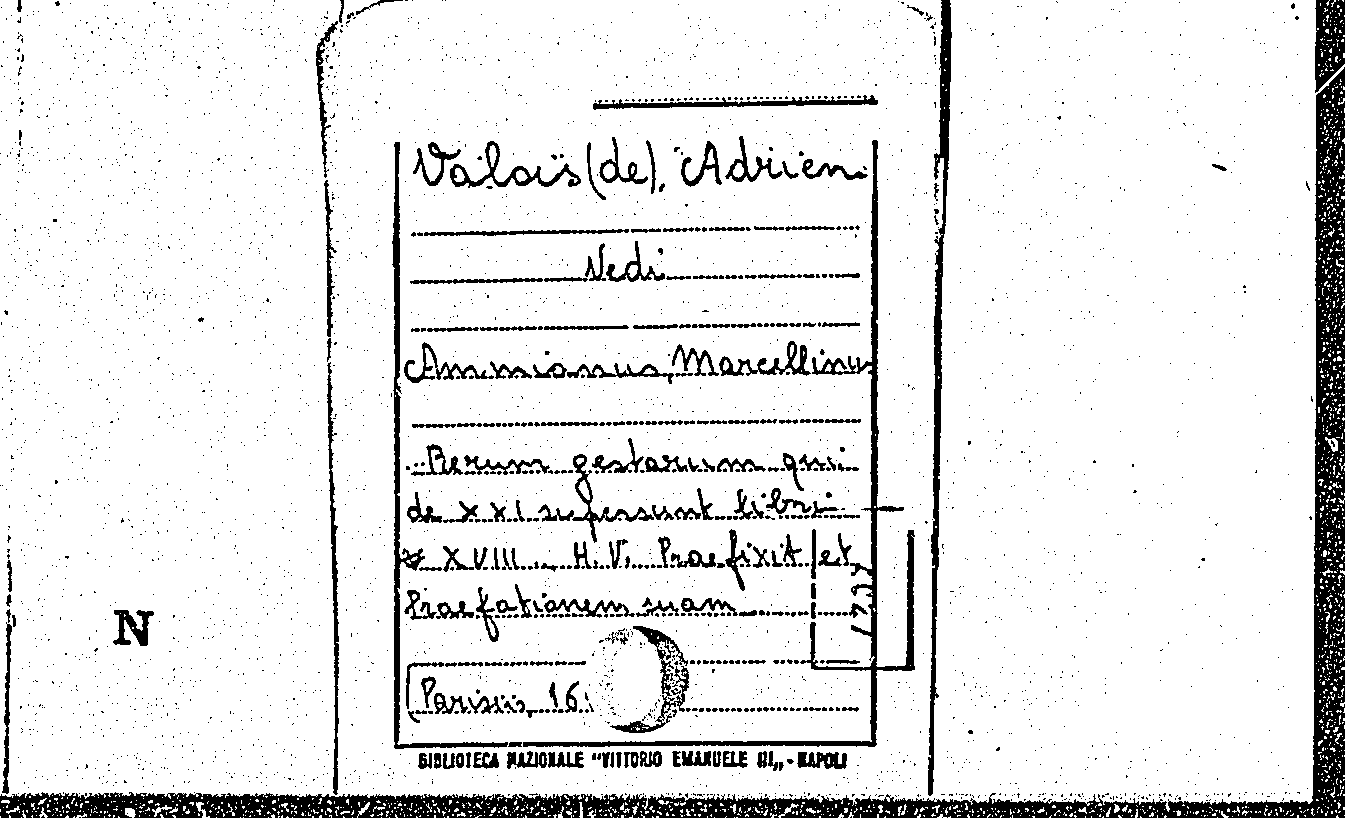 Valois (de), Adrien.
Vedi
Ammianus, Marcellinus
Rerum gestarum qui
de XXXI supersunt libri
XVIII... H. V. Praefixit et
Praefationem suam
Parisiis, 16
N
BIBLIOTECA NAZIONALE "VITTORIO EMANUELE III" - NAPOLI